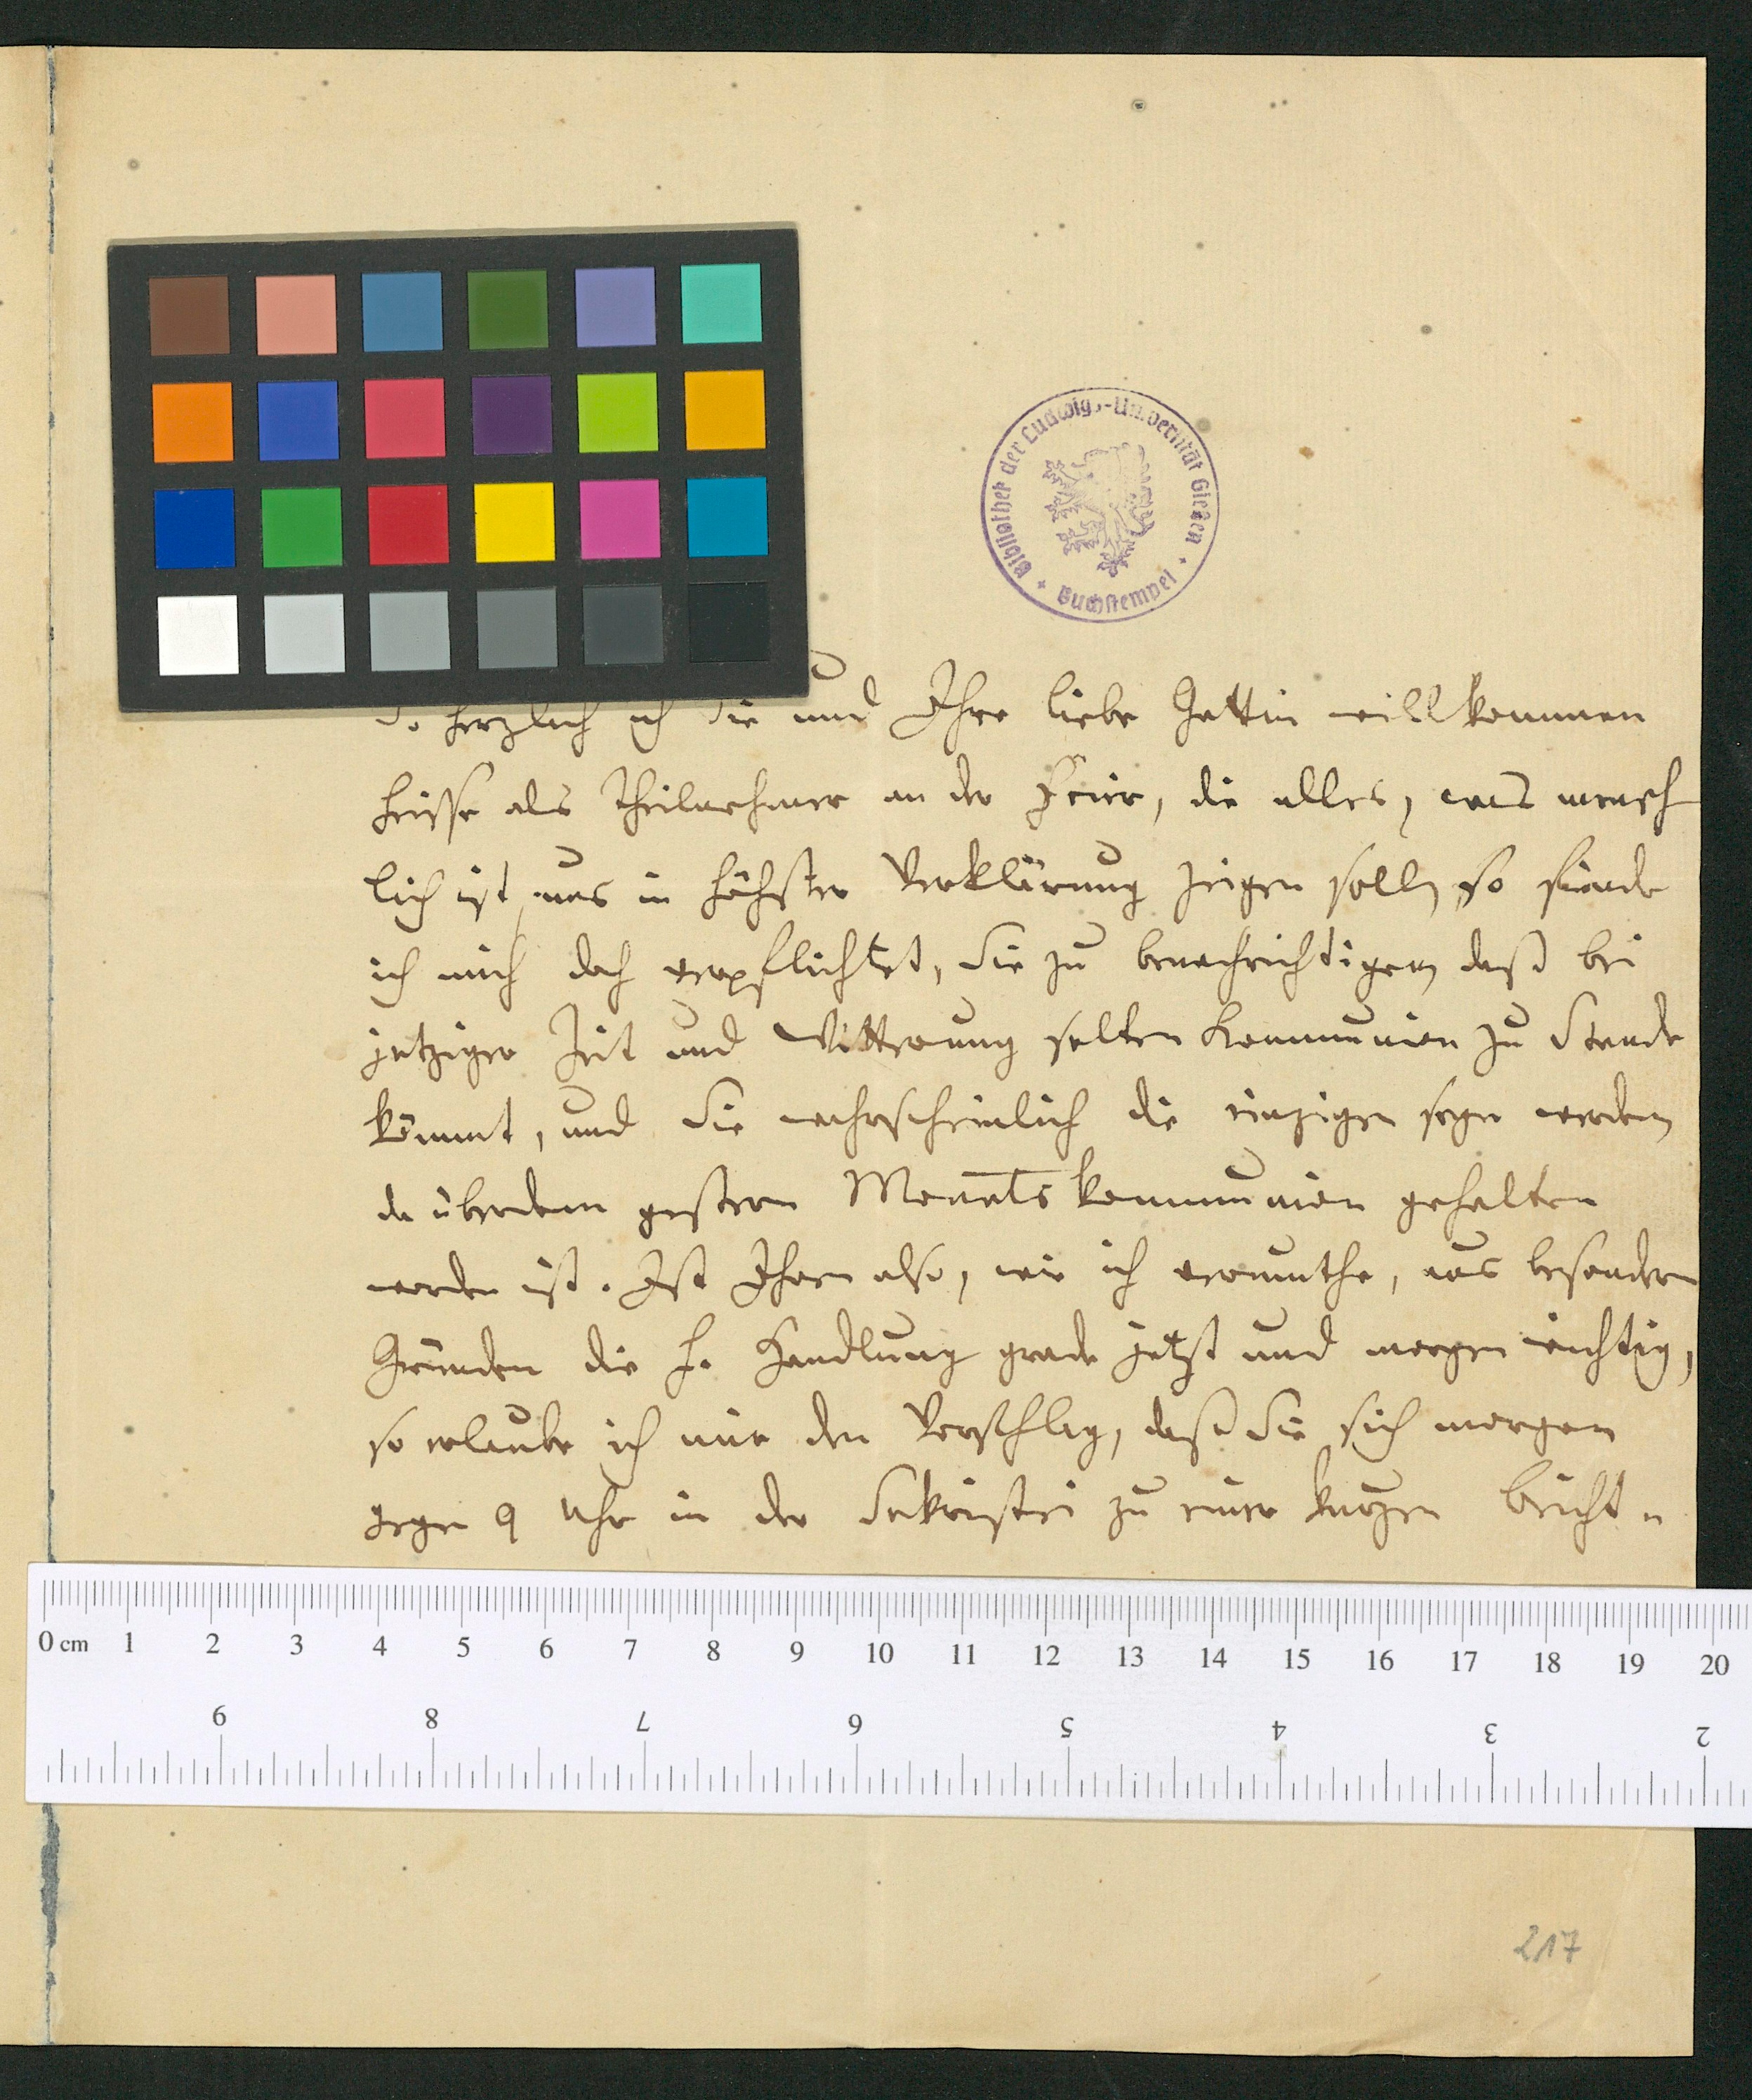 Bibliothek der Ludwigs-Universität Gießen
Buchstempel
So herzlich ich Sie und Ihre liebe Gattin willkommen
heisse als Theilnehmer an der Feier, die alles, was mensch
lich ist, uns in höchster Verklärung zeigen soll, so finde
ich mich doch verpflichtet, Sie zu benachrichtigen, daß bei
jetziger Zeit und Witterung selten Kommunion zu Stande
kömmt, und Sie wahrscheinlich die einzigen seyn werden,
da überdem gestern Monatskommunion gehalten
worden ist. Ist Ihnen also, wie ich vermuthe, aus besondern
Gründen die h. Handlung grade jetzt und morgen wichtig,
so erlaube ich mir den Vorschlag, daß Sie sich morgen
gegen 9 Uhr in der Sakristei zu einer kurzen Beicht
0 cm 1 2 3 4 5 6 7 8 9 10 11 12 13 14 15 16 17 18 19 20
9 8 7 6 5 4 3 2
217